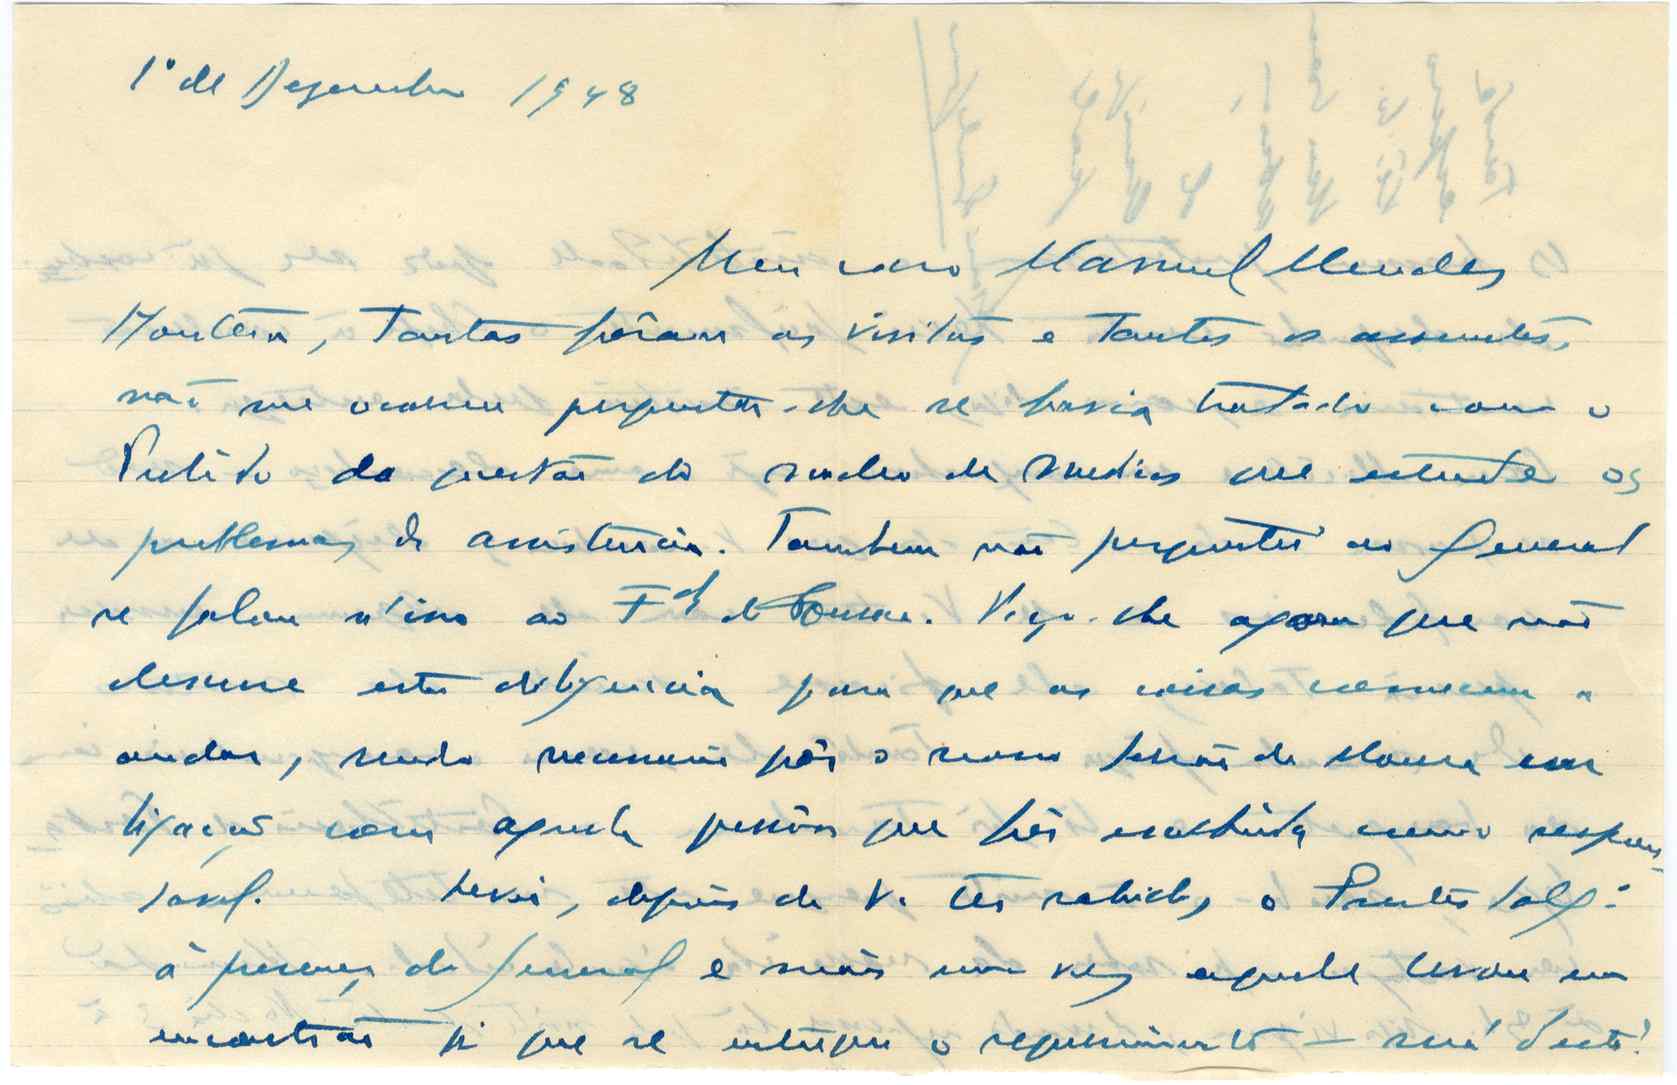 1º de Dezembro 1948
Meu caro Manuel Mendes
Hontem, tantas fôram as visitas e tantos os assuntos,
não me ocorreu perguntar-lhe se havia tratado com o
Partido da questão do nucleo de medicos que estude os
problemas de assistencia. Tambem não perguntei ao General
se falou n'isso ao Fdº de Fonseca. Peço-lhe agora que não
descure esta diligencia para que as coisas comecem a
andar, sendo necessario pôr o nosso de Moura em
ligação com aquela pessôa que fôr escolhida como respon-
savel. Levei, depois de V. ter sahido, o Prestes Salg:
á presença do General e mais uma vez aquele levou um
encontrão p'ª que se entregue o requerimento — será d'esta!